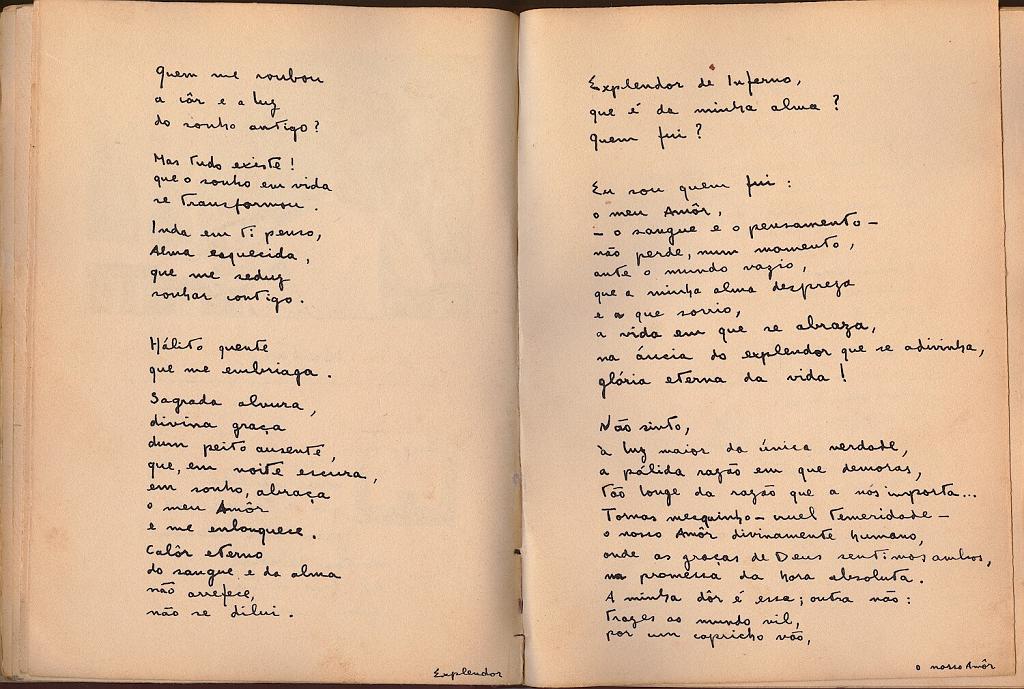 Quem me roubou
a côr e a luz
do sonho antigo?
Mas tudo existe!
que o sonho em vida
se transformou.
Inda em ti penso,
Alma esquecida,
que me seduz
sonhar contigo.
Hálito quente
que me embriaga.
Sagrada alvura,
divina graça
dum peito ausente,
que, em noite escura,
em sonho, abraça
o meu Amôr
e me enlouquece.
Calôr eterno
do sangue e da alma
não arrefece,
não se dilui.
Explendor
Explendor de Inferno,
que é da minha alma?
Quem fui?
Eu sou quem fui:
o meu Amôr,
– o sangue e o pensamento –
não perde, num momento,
ante o mundo vazio,
que a minha alma despreza
e a que sorrio,
a vida em que se abraza,
na ância do explendor que se adivinha,
glória eterna da vida!
Não sinto,
à luz maior da única verdade,
a pálida razão em que demoras,
tão longe da razão que a nós importa...
Tornas mesquinho – cruel temeridade –
o nosso Amôr divinamente humano,
onde as graças de Deus sentimos ambos,
na promessa da hora absoluta.
A minha dôr é essa; outra não:
trazes ao mundo vil,
por um capricho vão,
o nosso Amôr